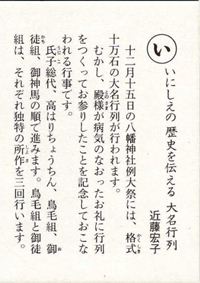 い
いにしえの 歴史を伝える 大名行列
近藤宏子
十二月十五日の八幡神社例大祭には、格式
十万石の大名行列が行われます。
むかし、殿様が病気のなおったお礼に行列
をつくってお参りしたことを記念しておこな
われる行事です。
氏子総代、高はりちょうちん、鳥毛組、御
徒組、御神馬の順で進みます。鳥毛組と御徒
組は、それぞれ独特の所作を三回行います。